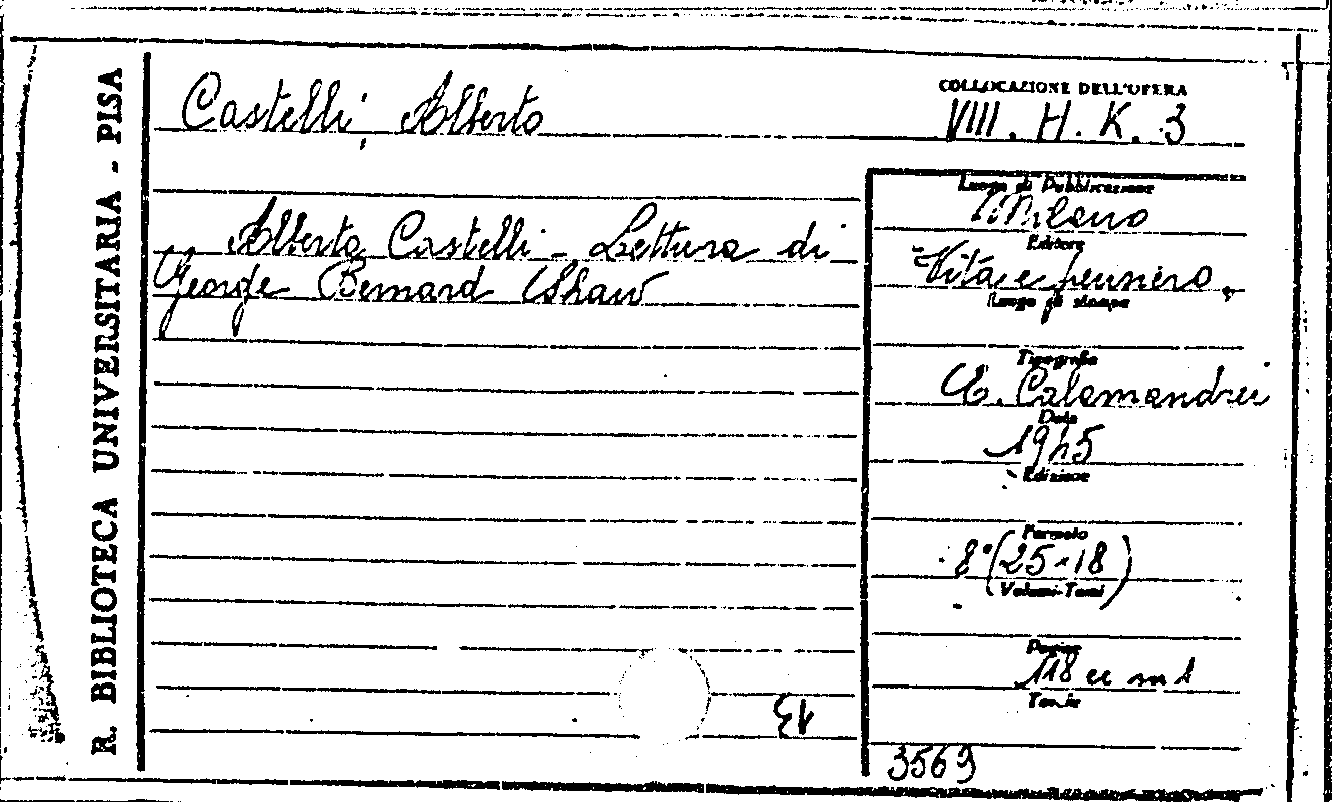 R. BIBLIOTECA UNIVERSITARIA - PISA
Castelli, Alberto
COLLOCAZIONE DELL'OPERA
VIII. H. K. 3
Alberto Castelli - Lettura di
George Bernard Shaw
Luogo di Pubblicazione
Milano
Editore
Vita e pensiero,
Luogo di stampa
Tipografia
C. Calamandrei
Data
1945
Edizione
Formato
8° (25×18)
Volumi-Tomi
Pagine
118 cc m 1
Tavole
3569